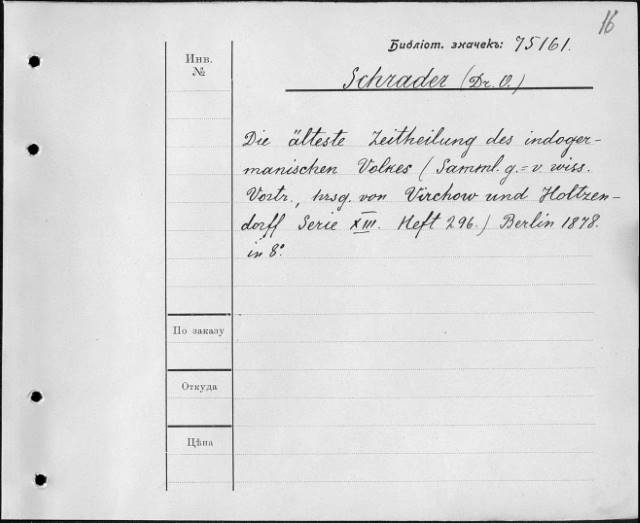 16
Библіот. значекъ: 75161.
Инв.
№
Schrader (Dr. O.)
Die älteste Zeitheilung des indoger-
manischen Volkes (Samml. g.=v. wiss.
Vortr., hrsg. von Virchow und Holtzen-
dorff Serie XIII. Heft 296.) Berlin 1878.
in 8°.
По заказу
Откуда
Цѣна